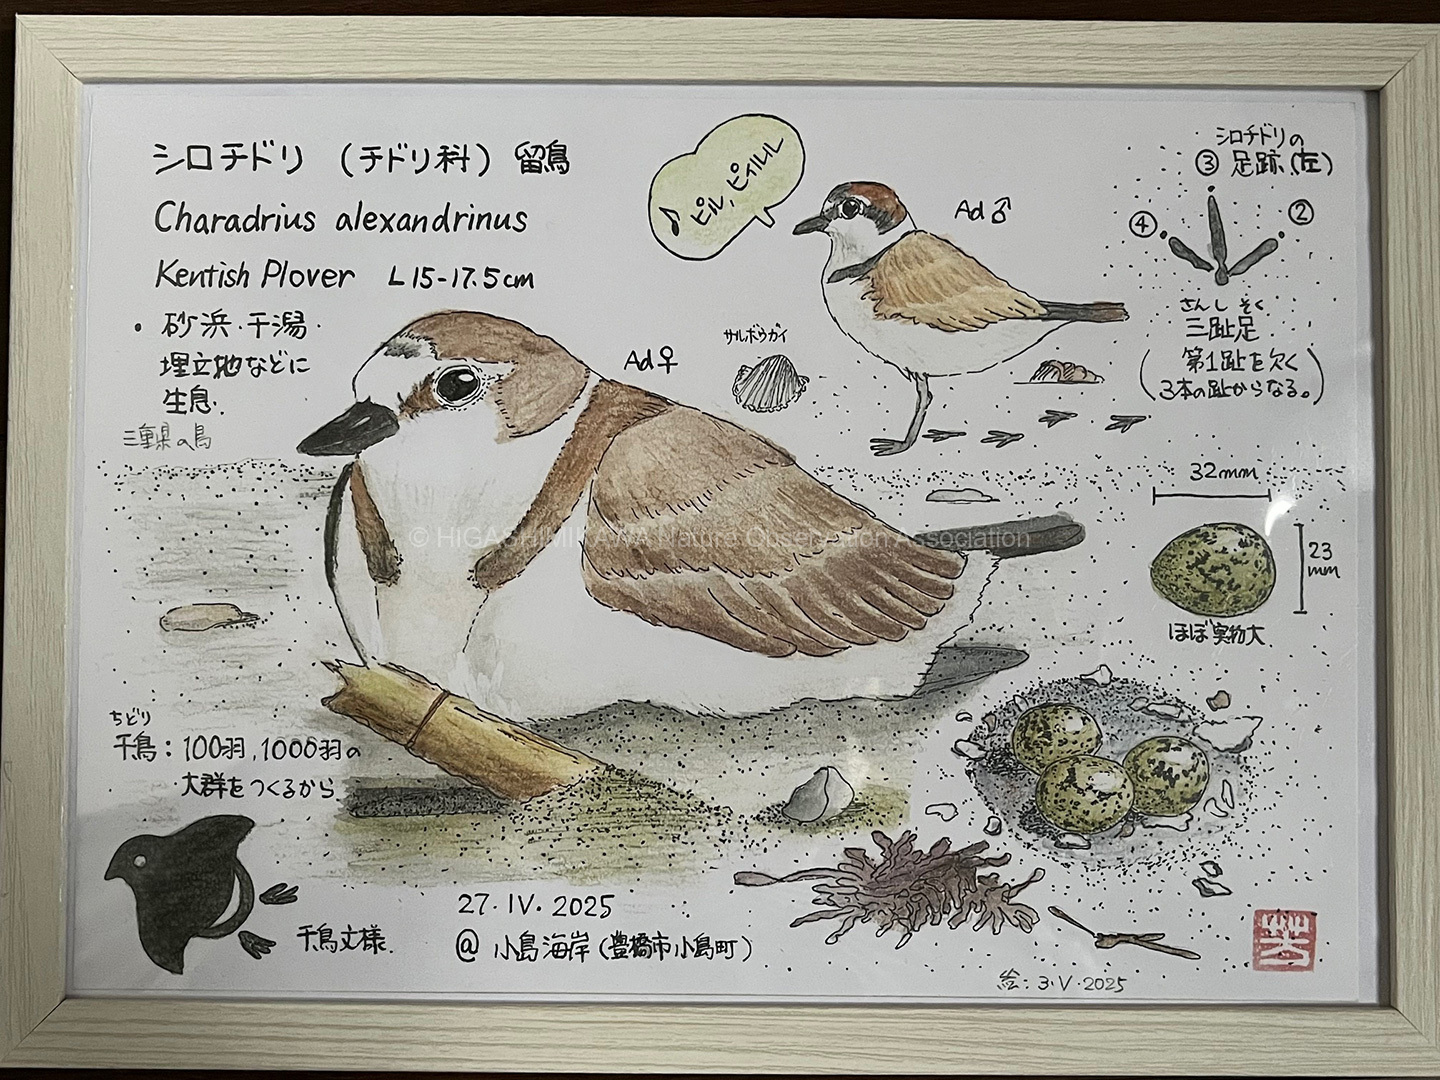 シロチドリ (チドリ科) 留鳥
Charadrius alexandrinus
Kentish Plover L 15-17.5cm
・砂浜・干潟・
埋立地などに
生息.
三重県の鳥
♪ ピル, ピィルル
Ad♂
Ad♀
サルボウガイ
シロチドリの
③ 足跡(左)
④ ②
さんし そく
三趾足
(第1趾を欠く
3本の趾からなる。)
32mm
23
mm
ほぼ実物大
© HIGASHIMIKAWA Nature Observation Association
ちどり
千鳥: 100羽, 1000羽の
大群をつくるから
千鳥文様.
27・IV・2025
@ 小島海岸(豊橋市小島町)
絵: 3・V・2025